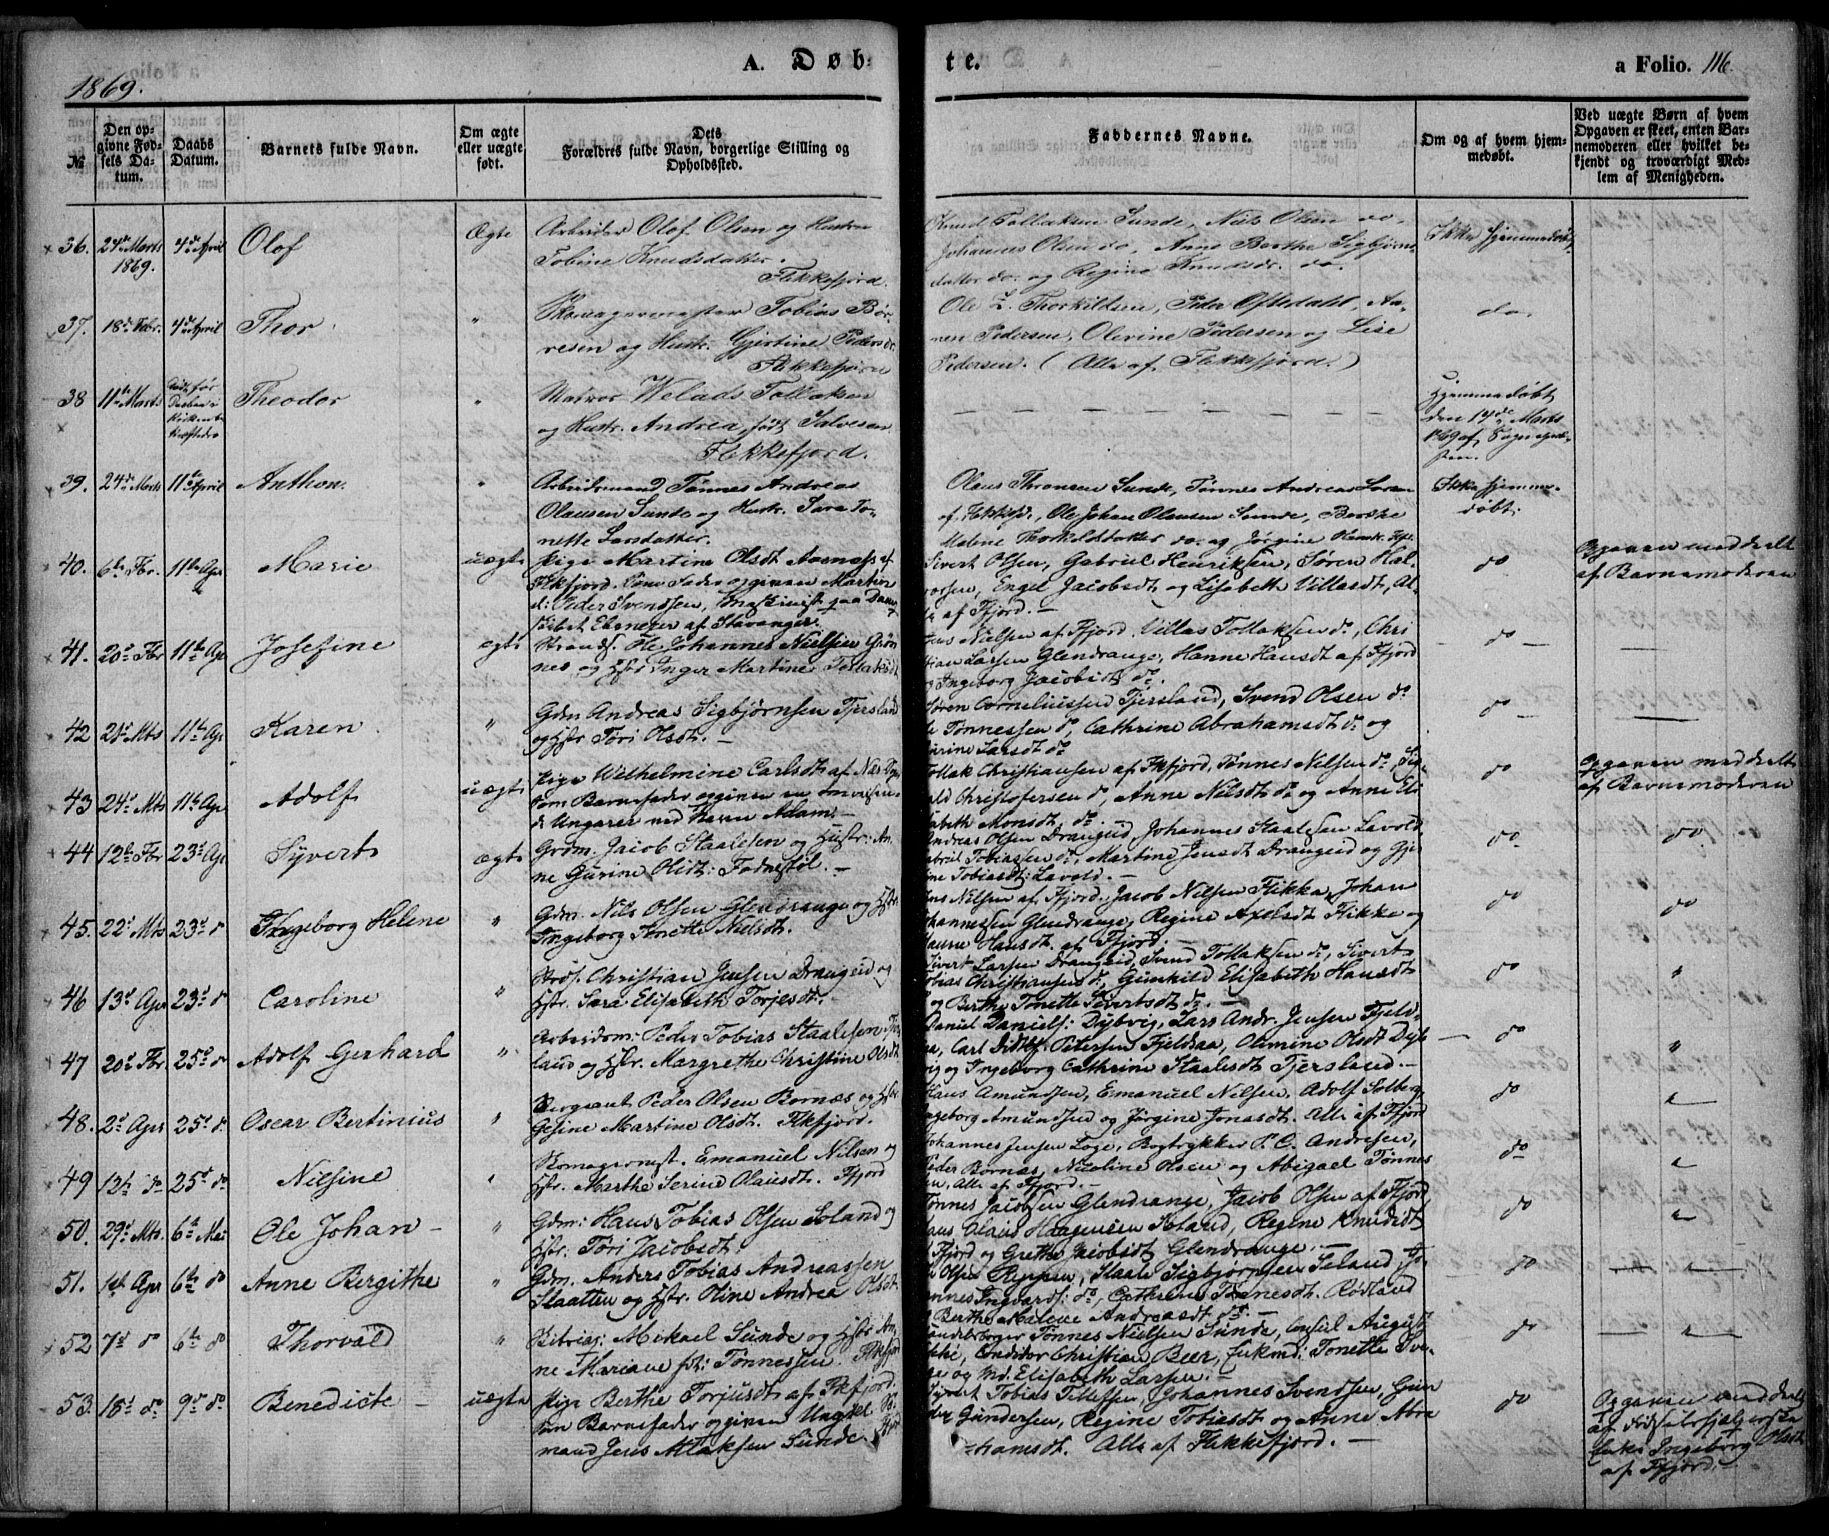 1869.
A. Døb-
te.
a Folio. 116.
№
Den op-
givne Fød-
sels Da-
tum.
Daabs
Datum.
Barnets fulde Navn.
Om ægte
eller uægte
født.
Dets
Forældres fulde Navn, borgerlige Stilling og
Opholdssted.
Faddernes Navne.
Om og af hvem hjem-
medøbt.
Ved uægte Børn af hvem
Opgaven er skeet, enten Bar-
nemoderen eller hvilket be-
kjendt og troværdigt Med-
lem af Menigheden.
36. 24de Marts 4de April Olof Ægte Arbeider Olof Olsen og Hustru
1869.
Tobine Knudsdatter.
Flekkefjord.
Knud Tollaksen Sunde, Niels Olsen do,
Johannes Olsen do, Anne Berthe Sigbjørns-
datter do. og Regine Knudsdr. do.
Ikke hjemmedøbt
37. 18de Febr. 4de April Thor " Skomagermester Tobias Bør-
resen og Hustr. Gjertine Pedersdr.
Flekkefjord
Ole Z. Thorkildsen, Peder Oftedahl, An-
nen Pedersen, Olevine Pedersen og Lise
Pedersen. (Alle af Flekkefjord.)
do.
38 11te Marts Theodor " Matros Welads Tollaksen
og Hustr. Andrea, født Salvesen
Flekkefjord.
Hjemmedøbt
den 17de Marts
39. 24de Marts 11te April Anthon. " Arbeidsmand Tønnes Andreas
Olausen Sunde og Hustr. Sara To-
nette Larsdatter.
Olaus Thronsen Sunde, Tønnes Andreas Larsen
af Flekkefd., Ole Johan Olausen Sunde, Berthe
Malene Thorkildsdatter do. og Jørgine
Ikke hjemme-
døbt.
40. 6te Fbr. 11te Apr Marie uægte Pige Martine Olsdt Aasnæss af
Fkfjord. Som Fader opgiven Martin
d: Peder Svendsen, Maskinist paa Damp
skibet Ebenezer af Stavanger.
Sivert Olsen, Gabriel Henriksen, Søren Hal-
vorsen, Engel Jacobsdt og Lisabeth Villasdt, Al-
le af Ffjord. —
do
Opgaven meddelt
af Barnemoderen
41. 20de Fbr 11te Apr Josefine ægte Strands. He. Johannes Nielsen Grøn
nes og Hstr Inger Martine Tollaksdt
Nielsen af Ffjord, Villas Tollaksen do, Chri
stian Larsen Glendrange, Hanne Hansdt af Ffjord
og Ingeborg Jacobsdt do.
do
42 21de Mts 11te Apr Karen " Gdm Andreas Sigbjørnsen Tjersland
og Hstr Tori Olsdt. —
Søren Corneliussen Tjersland, Svend Olsen do
Tønnessen do, Cathrine Abrahamsdt do og
Larsdt do
do
43 24de Mts 11te Apr Adolf uægte Pige Wilhelmine Carlsdt af Næs
som Barnefader opgiven en omreisen-
de Ungarer ved Navn Adam. —
Tollak Christiansen af Fkfjord, Tønnes Nielsen do, Sig-
vald Christofersen do, Anne Nilsdt do og Anne Eli
sabeth Monsdt do
do
Opgaven meddelt
af Barnemoderen
44 12te Fbr 23de Apr Syvert ægte Grdm. Jacob Staalesen og Hustr: An-
ne Gurine Olsdt: Fodnestøl. —
Andreas Olsen Drangeid, Johannes Staalesen Lavold
Gabriel Tobiassen do, Martine Jensdt Drangeid og Gjer
Tobiasdt: Lavold. —
do
do.
45. 22de Mts 23de d Ingeborg Helene " Gdm. Nils Olsen Glendrange og Hstr.
Ingeborg Tonette Nielsdt.
Jens Nilsen af Ffjord, Jacob Nilsen Flikka, Johan
Johannessen Glendrange, Regine Axelsdt Flikke og
Hansdt af Ffjord.
do
do
46 13de Apr 23de d Caroline " Strds. Christian Jensen Drangeid og
Hstr. Sara Elisabeth Torjesdt. —
Sivert Larsen Drangeid, Svend Tollaksen do, Sivert
Tobias Christiansen do, Gunhild Elisabeth Hansdt
og Berthe Tonette Sivertsdt do. —
do
"
47 20de Fbr 25de d Adolf Gerhard " Arbeidsm: Peder Tobias Staalesen Tjers
land og Hstr. Margrethe Christine Olsdt
Daniel Daniels: Dybvig, Lars Andr. Jensen Fjeld-
saa, Carl Didrik Petersen Fjeldsaa, Olemine Olsdt Dyb-
vig og Ingeborg Cathrine Staalesdt Tjersland. —
do
"
48. 2de Apr 25de d. Oscar Bertinius " Sergeant Peder Olsen Bornæs og Hstr
Gesine Martine Olsdt. Fkfjord.
Hans Amundsen, Emanuel Nilsen, Adolf Solberg,
Ingeborg Amundsen og Jørgine Jonasdt. Alle af Ffjord
do
"
49 12te do 25de do Nilsine " Skomagermst. Emanuel Nilsen og
Hstr. Marthe Serine Olausdt. Ffjord
Johannes Jensen Loge, Bogtrykker P. C. Andresen,
Peder Bornæs, Nicoline Olsen og Abigael Tønnes
sen, Alle af Ffjord. —
do
"
50. 29de Mts. 6te Mai Ole Johan — " Gdm: Hans Tobias Olsen Soland og
Hstr. Tori Jacobsdt.
Tønnes Jacobsen Glendrange, Jacob Olsen af Ffjord,
Claus Haagensen Soland, Regine Knudsdt
Ffjord og Grethe Jacobsdt Glendrange. —
do
"
51. 1st Apr 6te do Anne Bergithe " Gdm. Anders Tobias Andreassen
Slaatten og Hstr. Oline Andrea Olsdt.
Olsen Reppen, Staale Sigbjørnsen Seland, Jo-
hannes Ingvards: do, Cathrine Tønnesdt. Rødland
Berthe Malene Andreasdt do —
do
52 7de d 6te do Thorvald " Mikael Sunde og Hstr An-
ne Mariane fd: Tønnessen. Fkfjord
Tønnes Nielsen Sunde, Consul August
Conditor Christian Beer, Enkmd: Tonette Sve-
og Md. Elisabeth Larsen. —
do
53. 18de do 9de do Benedicte — uægte Pige Berthe Torjusdt af Fkfjord.
som Barnefader opgiven Ungkl
mand Jens Atlaksen Sunde
Tobias Tellefsen, Johannes Svendsen, Gun
der Gundersen, Regine Tobiasdt og Anne Abra
hamsdt. Alle af Flekkefjord. —
do
Opgaven meddelt
af Fødselshjælperske
Enke Ingeborg Olsdt
af Ffjord. —